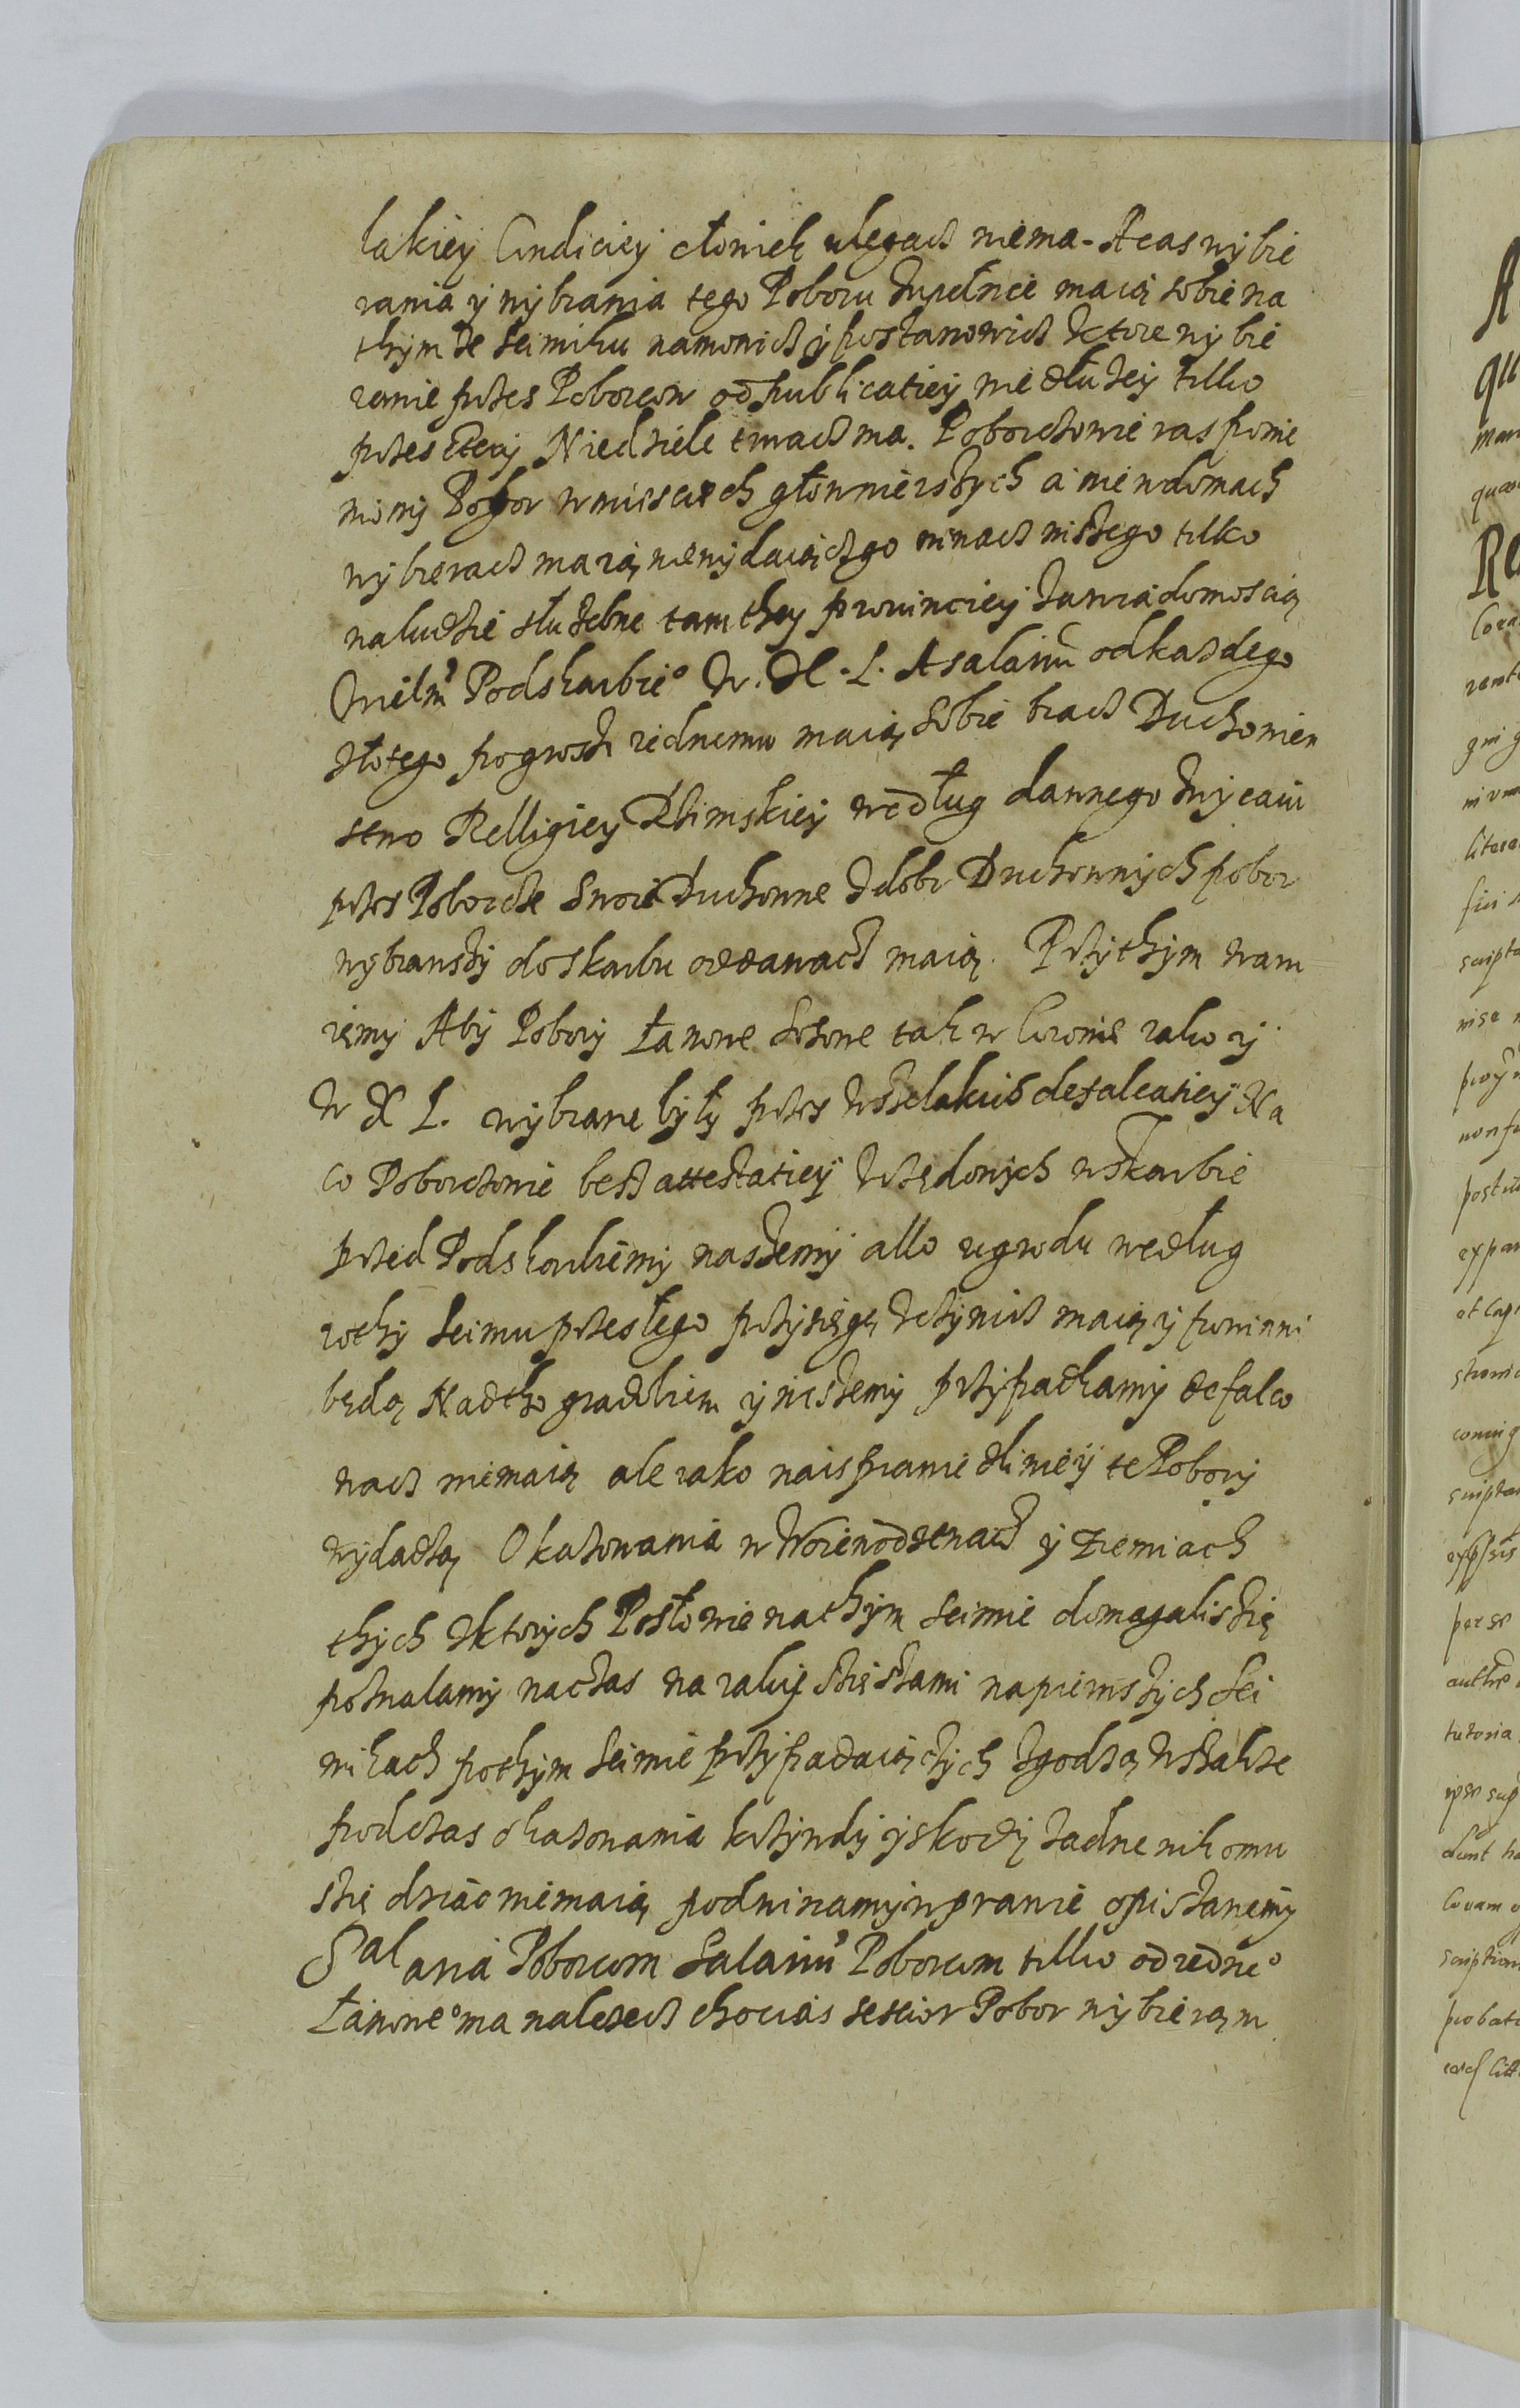 lakiey Condiciey człowiek ulegacz niema. A czas wybie
rania y wybrania tego Poboru zupełnie maią sobie na
thym ze seimiku namowicz y postanowicz ktore wybie
ranie przes Poborcow od publicatiey nie dłużey tilko
przes cztery Niedziele trwacz ma. Poborczowie ras pomie
niony Pobor w miescech głownieiszych a nie w domach
wybieracz maią niewydaiącz go na nacz niszego tilko
na ludzie służebne tam they prouinciey za wiadomoscią
Wielm° Podskarbie° W. X. L. A salariū od kazdego
złotego po groszu iednemu maią sobie bracz Duchowien
stwo Relligiey Rzimskiey według dawnego zwyczaiu
przes Poborcze swoie Duchowne z dobr Duchownych pobor
wybrawszy do skarbu oddawacz maią. Przythym waru
iemy Aby Pobory Łanowe Szosowe tak w Coronie iako y
w X L. wybrane były przes wszelakiis defalcatiey Na
co Poborczowie besz attestatiey Urzędowych w skarbie
przed Podskarbiemy naszemy albo u grodu według
rothy Seimu przesłego przysięgę uczynicz maią y powinni
będą Nadtho gradobiem y inszemy przypadkamy defalco
wacz niemaią ale iako naisprawiedliwiey te Pobory
wydadzą Okazowania w Woiewodztwach y ziemiach
thych z ktorych Posłowie na thym seimie domagali się
pozwalamy na czas na iaki się sami na pierwszych Sei
mikach po thym Seimie przypadaiączych zgodzą wszakze
podczas okazowania krzywdy y skody zadne nikomu
się dziac niemaią pod winamy w prawie opisanemy
Salaria Poborcom Salariū Poborcum tilko od iedne°
Łanowe° ma nalezecz chocias sescior Pobor wybieraią